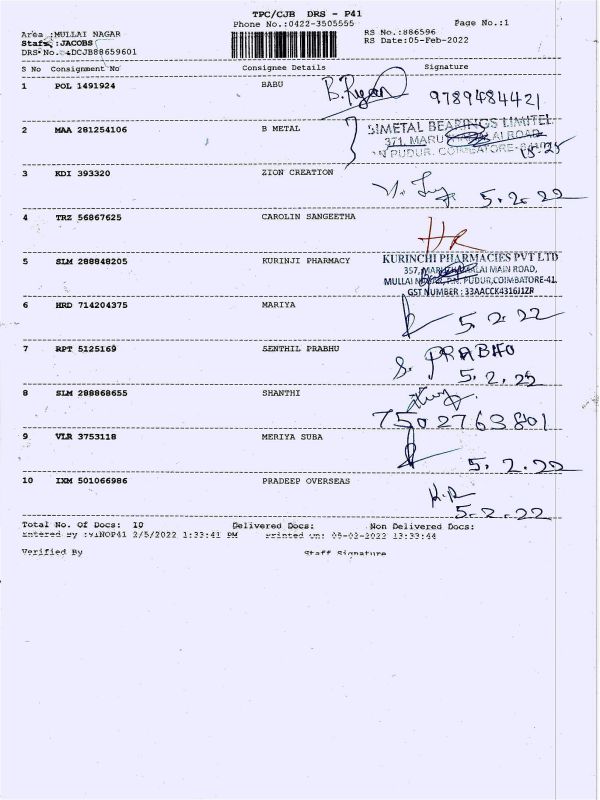 TPC/CJB DRS - P41
Phone No.:0422-3505555 Page No.:1
Area :MULLAI NAGAR RS No.:886596
Staff :JACOBS RS Date:05-Feb-2022
DRS No. :DCJB88659601
S No Consignment No Consignee Details Signature
1 POL 1491924 BABU B. Ryan 9789484421
2 MAA 281254106 B METAL BIMETAL BEARINGS LIMITED
371, MARU AI ROAD,
N PUDUR. COIMBATORE-
3 KDI 393320 ZION CREATION 5.2.22
4 TRZ 56867625 CAROLIN SANGEETHA
5 SLM 288848205 KURINJI PHARMACY KURINCHI PHARMACIES PVT LTD
357, MAIN ROAD,
MULLAI P.N. PUDUR,COIMBATORE-41.
GST NUMBER : 33AACCK4316J1ZR
6 HRD 714204375 MARIYA 5.2.22
7 RPT 5125169 SENTHIL PRABHU S. PRABHO
5.2.22
8 SLM 288868655 SHANTHI
7502763801
9 VLR 3753118 MERIYA SUBA 5.2.22
10 IXM 501066986 PRADEEP OVERSEAS K.R
5.2.22
Total No. Of Docs: 10 Delivered Docs: Non Delivered Docs:
Entered By :VINOP41 2/5/2022 1:33:41 PM Printed On: 05-02-2022 13:33:44
Verified By Staff Signature